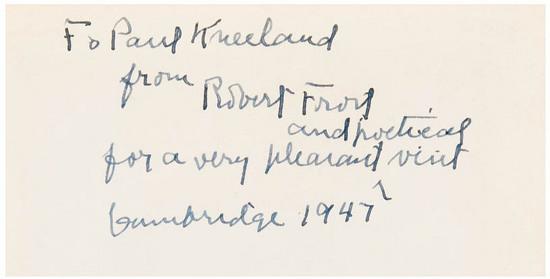 To Paul Kneeland
from
Robert Frost
and poetical
for a very pleasant ^ visit
Cambridge 1947